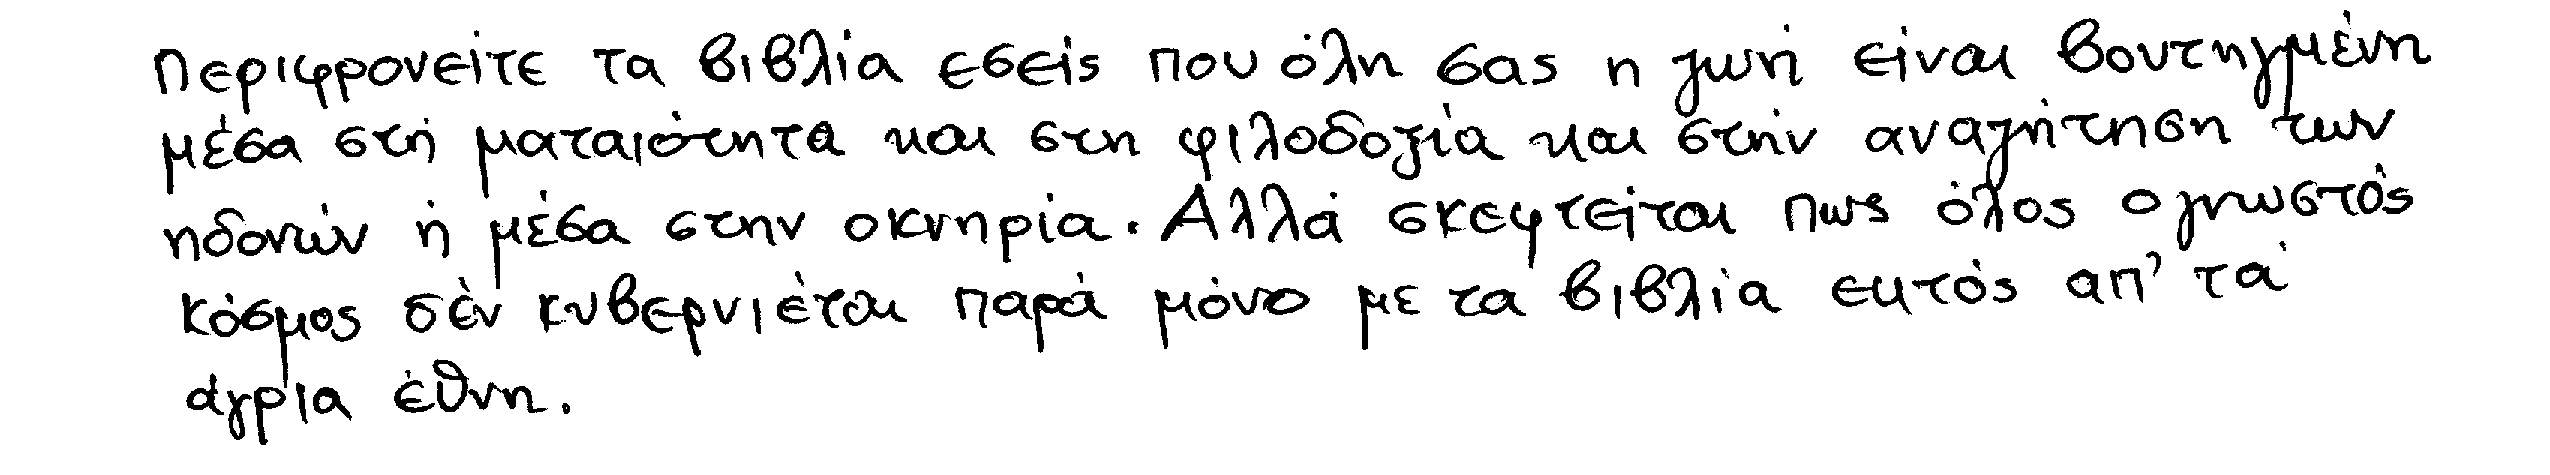 Περιφρονείτε τα βιβλία εσείς που όλη σας η ζωή είναι βουτηγμένη
μέσα στή ματαιότητα και στη φιλοδοξία και στήν αναζήτηση των
ηδονών ή μέσα στην οκνηρία. Αλλά σκεφτείται πως όλος ο γνωστός
κόσμος δέν κυβερνιέται παρά μόνο με τα βιβλία εκτός απ' τά
άγρια έθνη.